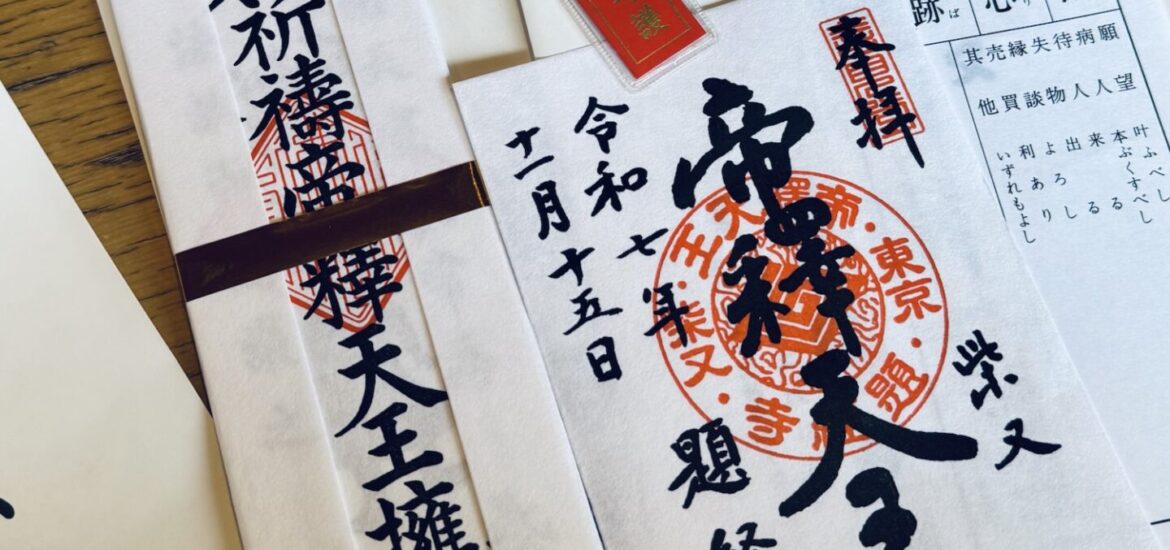 祈禱帝釋天王擁
護
奉拝
柴又
帝釋天王
題経
令和七年
十一月十五日
帝釋天王・柴又・題経寺・東京
心
跡
願望 叶ふべし
病人 本ぶくすべし
待人 来る
失物 出る
縁談 よろし
売買 利あり
其他 いずれもよし